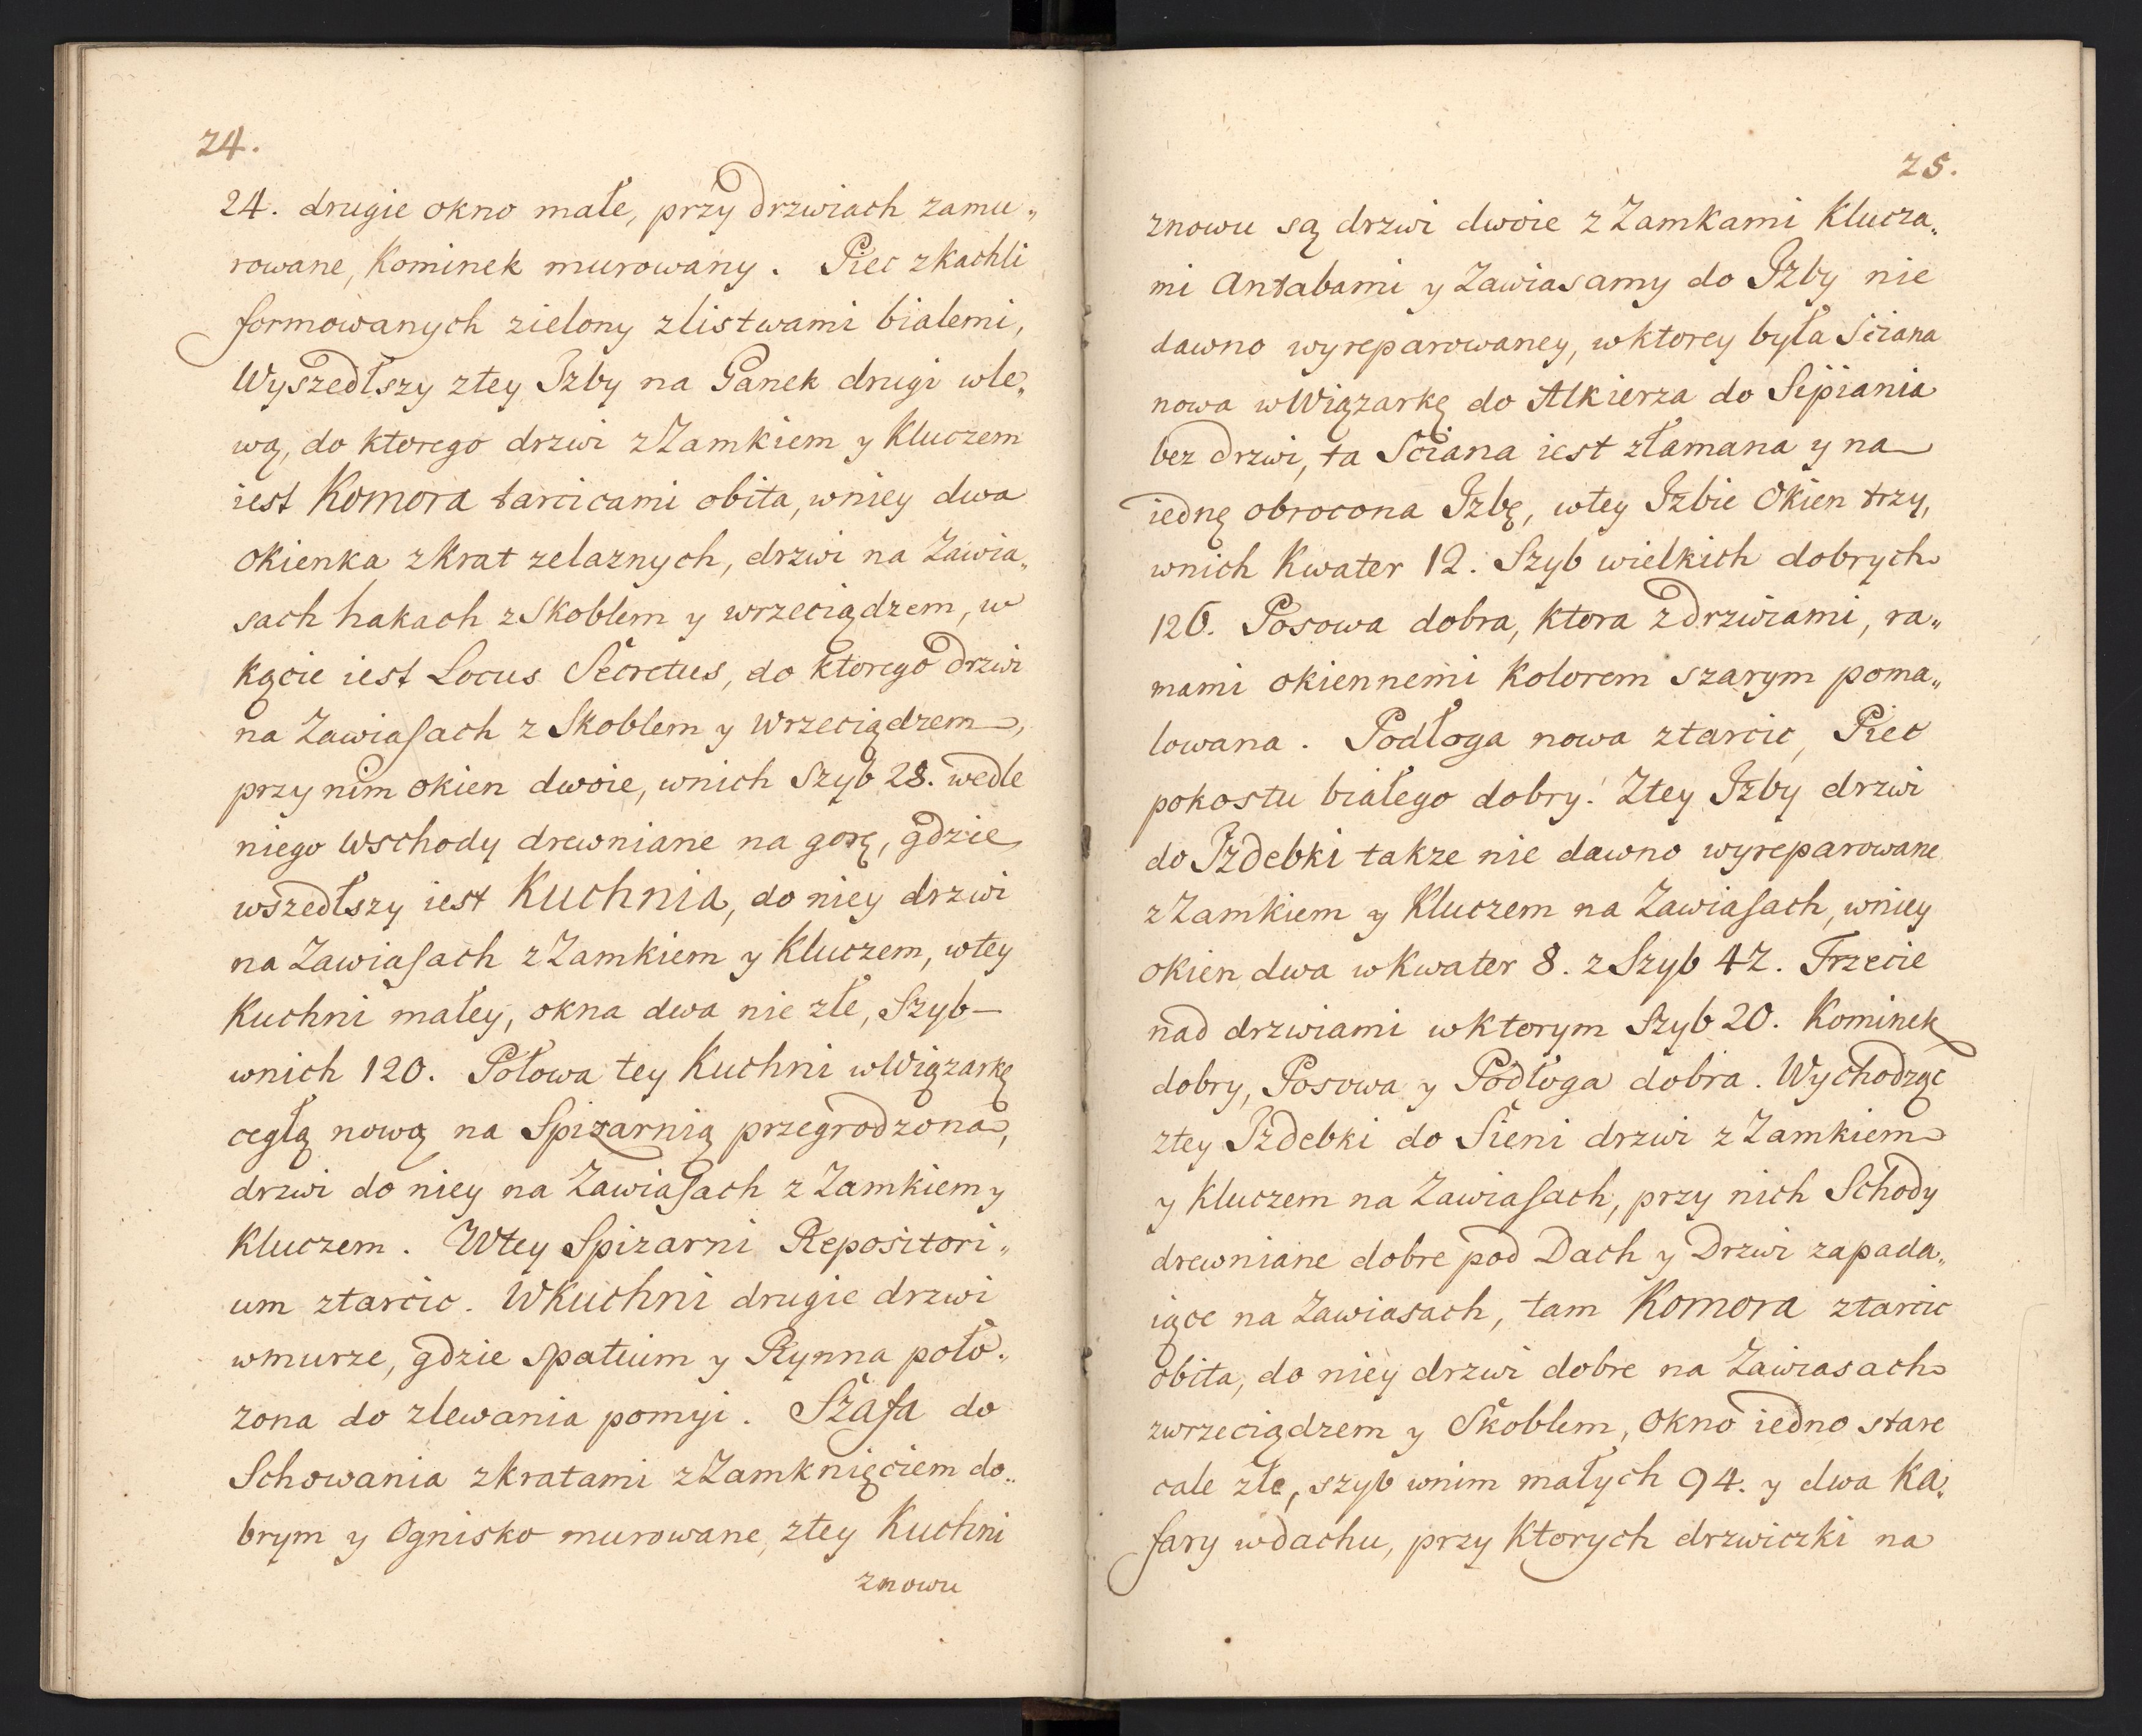 24.
24. drugie okno małe, przy drzwiach zamu„
rowane, Kominek murowany. Piec zkachli
formowanych zielony zlistwami bialemi,
Wyszedłszy ztey Jzby na Ganek drugi wle„
wą, do ktorego drzwi zZamkiem y Kluczem
iest Komora tarcicami obita, wniey dwa
okienka zkrat zelaznych, drzwi na Zawia„
sach hakach zSkoblem y wrzeciądzem, w
Kącie iest Locus Secretus, do ktorego drzwi
na Zawiasach z Skoblem y Wrzeciądzem,
przy nim okien dwoie, wnich Szyb 28. wedle
niego Wschody drewniane na gorę, gdzie
wszedłszy iest Kuchnia, do niey drzwi
na Zawiasach zZamkiem y Kluczem, wtey
Kuchni małey, okna dwa nie złe, Szyb
wnich 120. Połowa tey Kuchni wWiązarkę
cegłą nową na Spizarnią przegrodzona,
drzwi do niey na Zawiasach z Zamkiem y
Kluczem. Wtey Spizarni Repositori„
um ztarcic. WKuchni drugie drzwi
wmurze, gdzie Spatium y Rynna poło„
zona do zlewania pomyi. Szafa do
Schowania zkratami zZamknięciem do„
brym y Ognisko murowane, ztey Kuchni
znowu
25.
znowu są drzwi dwoie z Zamkami Klucza„
mi Antabami y Zawiasamy do Jzby nie
dawno wyreparowaney, wktorey była Sciana
nowa wWiązarkę do Alkierza do Sipiania
bez drzwi, ta Sciana iest złamana y na
iednę obrocona Jzbę, wtey Jzbie Okien trzy,
wnich Kwater 12. Szyb wielkich dobrych
126. Posowa dobra, Ktora zdrzwiami, ra„
mami okiennemi Kolorem szarym poma„
lowana. Podłoga nowa ztarcic, Piec
pokostu białego dobry. Ztey Jzby drzwi
do Jzdebki takze nie dawno wyreparowane
zZamkiem y Kluczem na Zawiasach, wniey
okien dwa wKwater 8. zSzyb 42. Trzecie
nad drzwiami wKtorym Szyb 20. Kominek
dobry, Posowa y Podłoga dobra. Wychodząc
ztey Jzdebki do Sieni drzwi z Zamkiem
y Kluczem na Zawiasach, przy nich Schody
drewniane dobre pod Dach y Drzwi zapada„
iące na Zawiasach, tam Komora ztarcic
obita, do niey drzwi dobre na Zawiasach
zwrzeciądzem y Skoblem, Okno iedno stare
cale złe, szyb wnim małych 94. y dwa Ka„
fary wdachu, przy Ktorych drzwiczki na